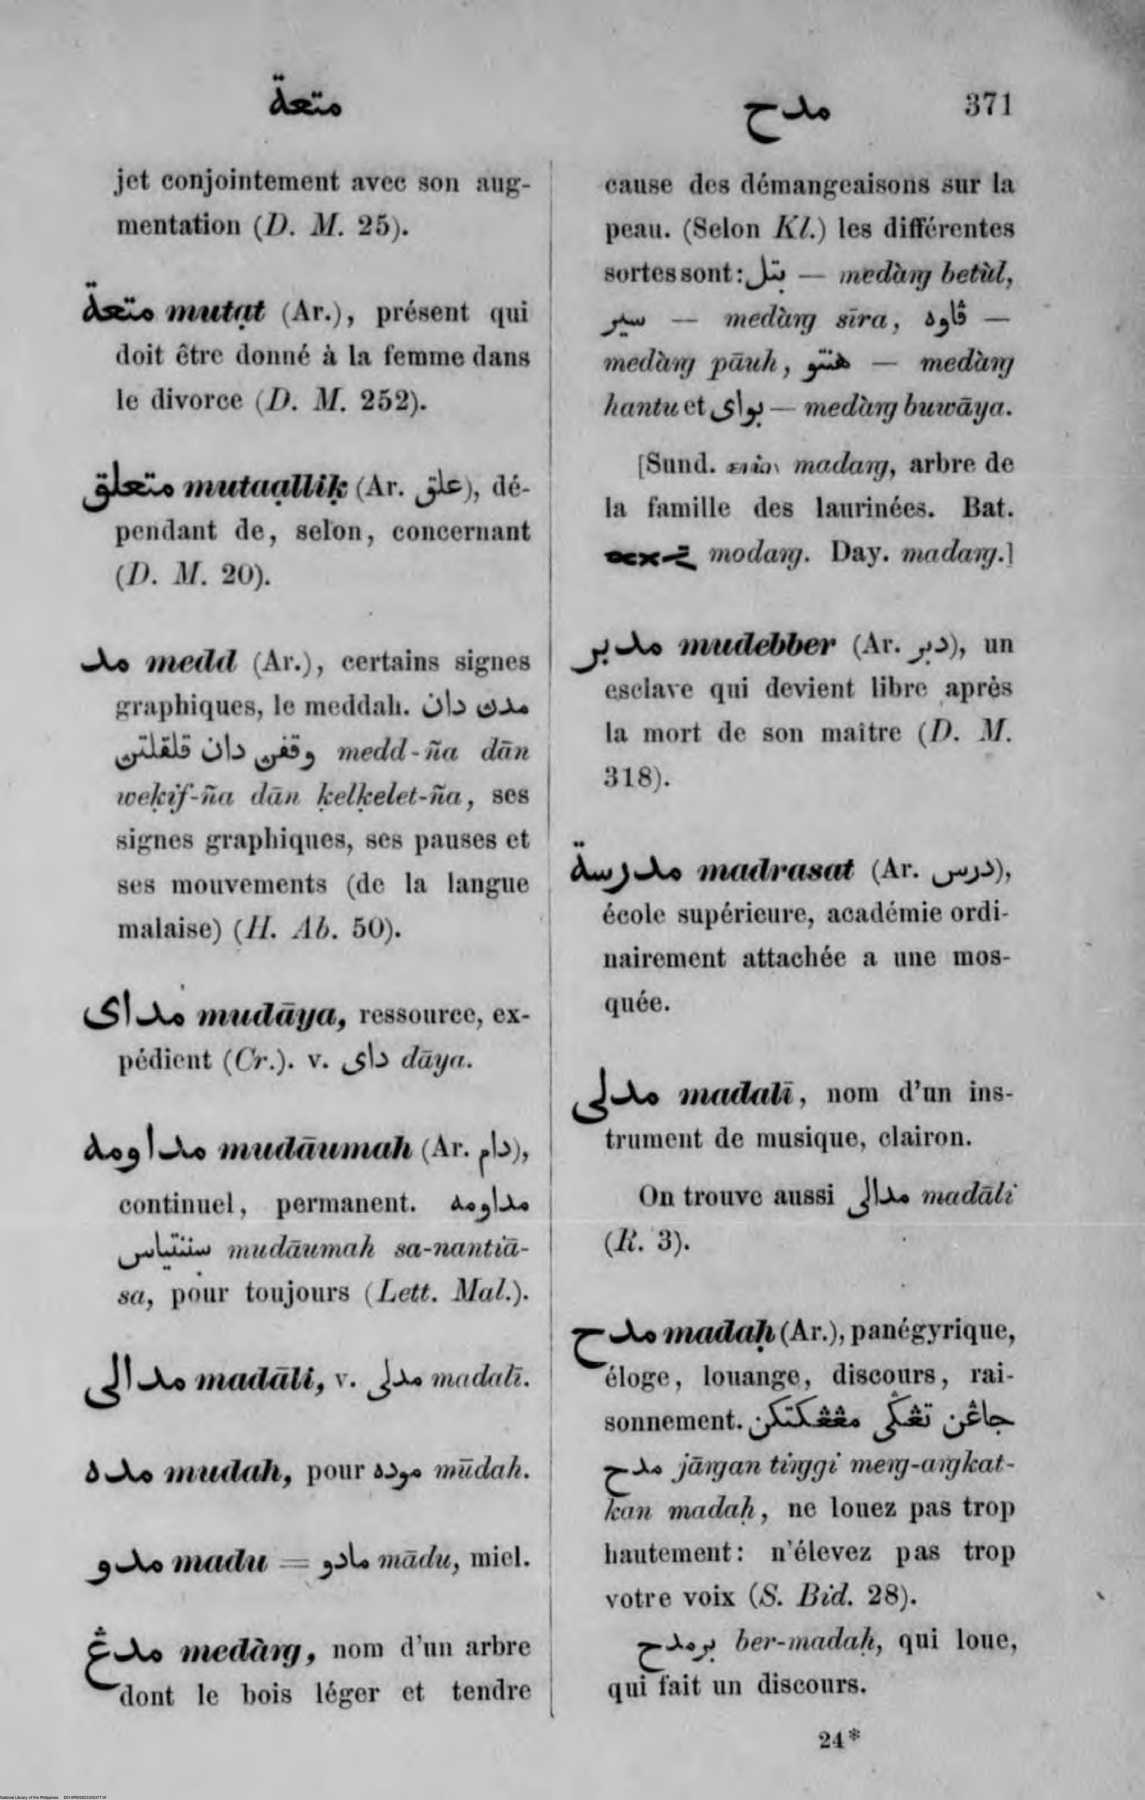 متعة
مدح 371
jet conjointement avec son aug-
mentation (D. M. 25).
متعة mutạt (Ar.), présent qui
doit être donné à la femme dans
le divorce (D. M. 252).
متعلق mutaạlliḳ (Ar. علق), dé-
pendant de, selon, concernant
(D. M. 20).
مد medd (Ar.), certains signes
graphiques, le meddah. مدڽ دان
وقفڽ دان قلقلتڽ medd-ña dān
weḳif-ña dān ḳelḳelet-ña, ses
signes graphiques, ses pauses et
ses mouvements (de la langue
malaise) (H. Ab. 50).
مداى mudāya, ressource, ex-
pédient (Cr.). v. داى dāya.
مداومه mudāumah (Ar. دام),
continuel, permanent. مداومه
سننتياس mudāumah sa-nantiā-
sa, pour toujours (Lett. Mal.).
مدالى madāli, v. مدلى madalī.
مده mudah, pour موده mūdah.
مدو madu = مادو mādu, miel.
مدڠ medàrg, nom d'un arbre
dont le bois léger et tendre
cause des démangeaisons sur la
peau. (Selon Kl.) les différentes
sortes sont: بتل — medàrg betùl,
سير — medàrg sīra, ڤاوه —
medàrg pāuh, هنتو — medàrg
hantu et بواى — medàrg buwāya.
[Sund. madarg, arbre de
la famille des laurinées. Bat.
modarg. Day. madarg.]
مدبر mudebber (Ar. دبر), un
esclave qui devient libre après
la mort de son maître (D. M.
318).
مدرسة madrasat (Ar. درس),
école supérieure, académie ordi-
nairement attachée a une mos-
quée.
مدلى madalī, nom d'un ins-
trument de musique, clairon.
On trouve aussi مدالى madāli
(R. 3).
مدح madaḥ (Ar.), panégyrique,
éloge, louange, discours, rai-
sonnement. جاڠن تڠگى مڠڠكتكن
مدح jārgan tirggi merg-argkat-
kan madaḥ, ne louez pas trop
hautement: n'élevez pas trop
votre voix (S. Bid. 28).
برمدح ber-madaḥ, qui loue,
qui fait un discours.
24*